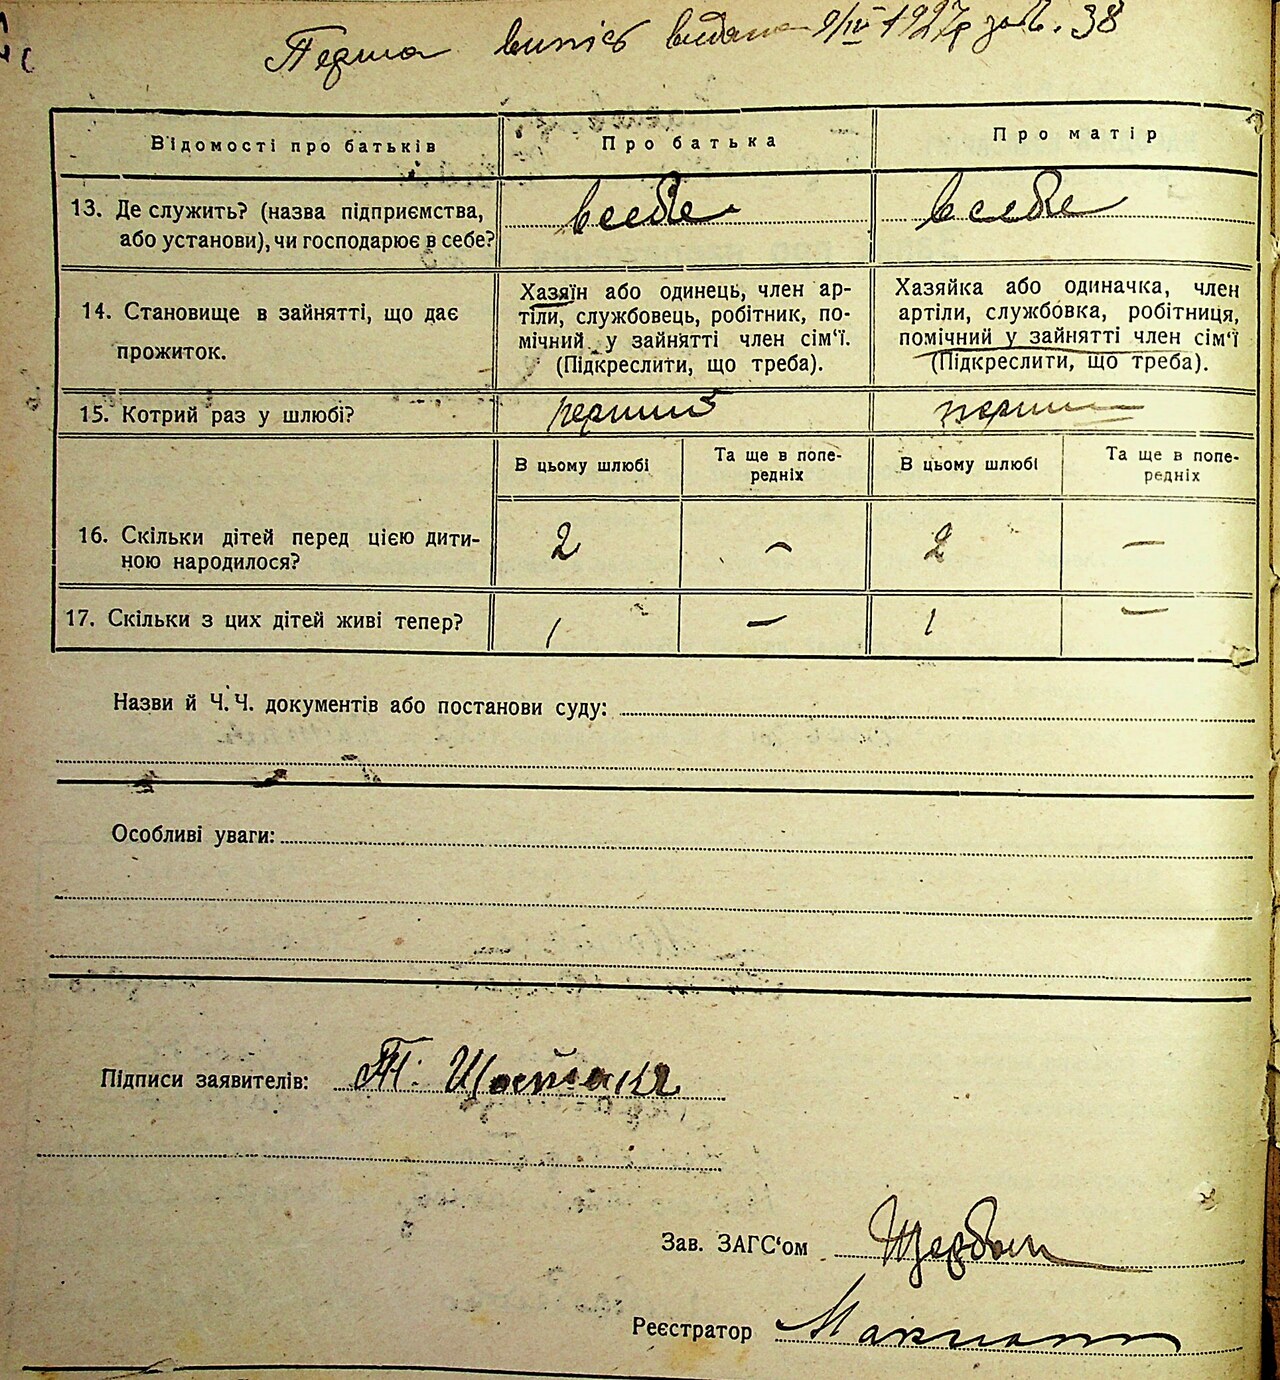 Перша випись видана 9/IV 1927р за №. 38
Відомості про батьків
Про батька
Про матір
13. Де служить? (назва підприємства,
або установи), чи господарює в себе?
в себе
в себе
14. Становище в зайнятті, що дає
прожиток.
Хазяїн або одинець, член ар-
тіли, службовець, робітник, по-
мічний у зайнятті член сім'ї.
(Підкреслити, що треба).
Хазяйка або одиначка, член
артіли, службовка, робітниця,
помічний у зайнятті член сім'ї
(Підкреслити, що треба).
15. Котрий раз у шлюбі?
перший
перший
В цьому шлюбі
Та ще в попе-
редніх
В цьому шлюбі
Та ще в попе-
редніх
16. Скільки дітей перед цією дити-
ною народилося?
2
—
2
—
17. Скільки з цих дітей живі тепер?
1
—
1
—
Назви й Ч.Ч. документів або постанови суду:
Особливі уваги:
Підписи заявителів:
Зав. ЗАГС'ом
Реєстратор